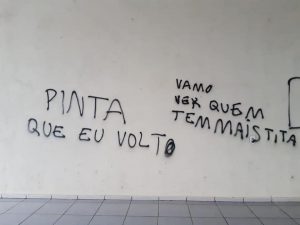 PINTA
QUE EU VOLTO
VAMO
VER QUEM
TEM MAIS TITA